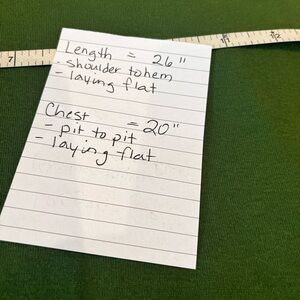 Length = 26"
- shoulder to hem
- laying flat
Chest = 20"
- pit to pit
- laying flat
7